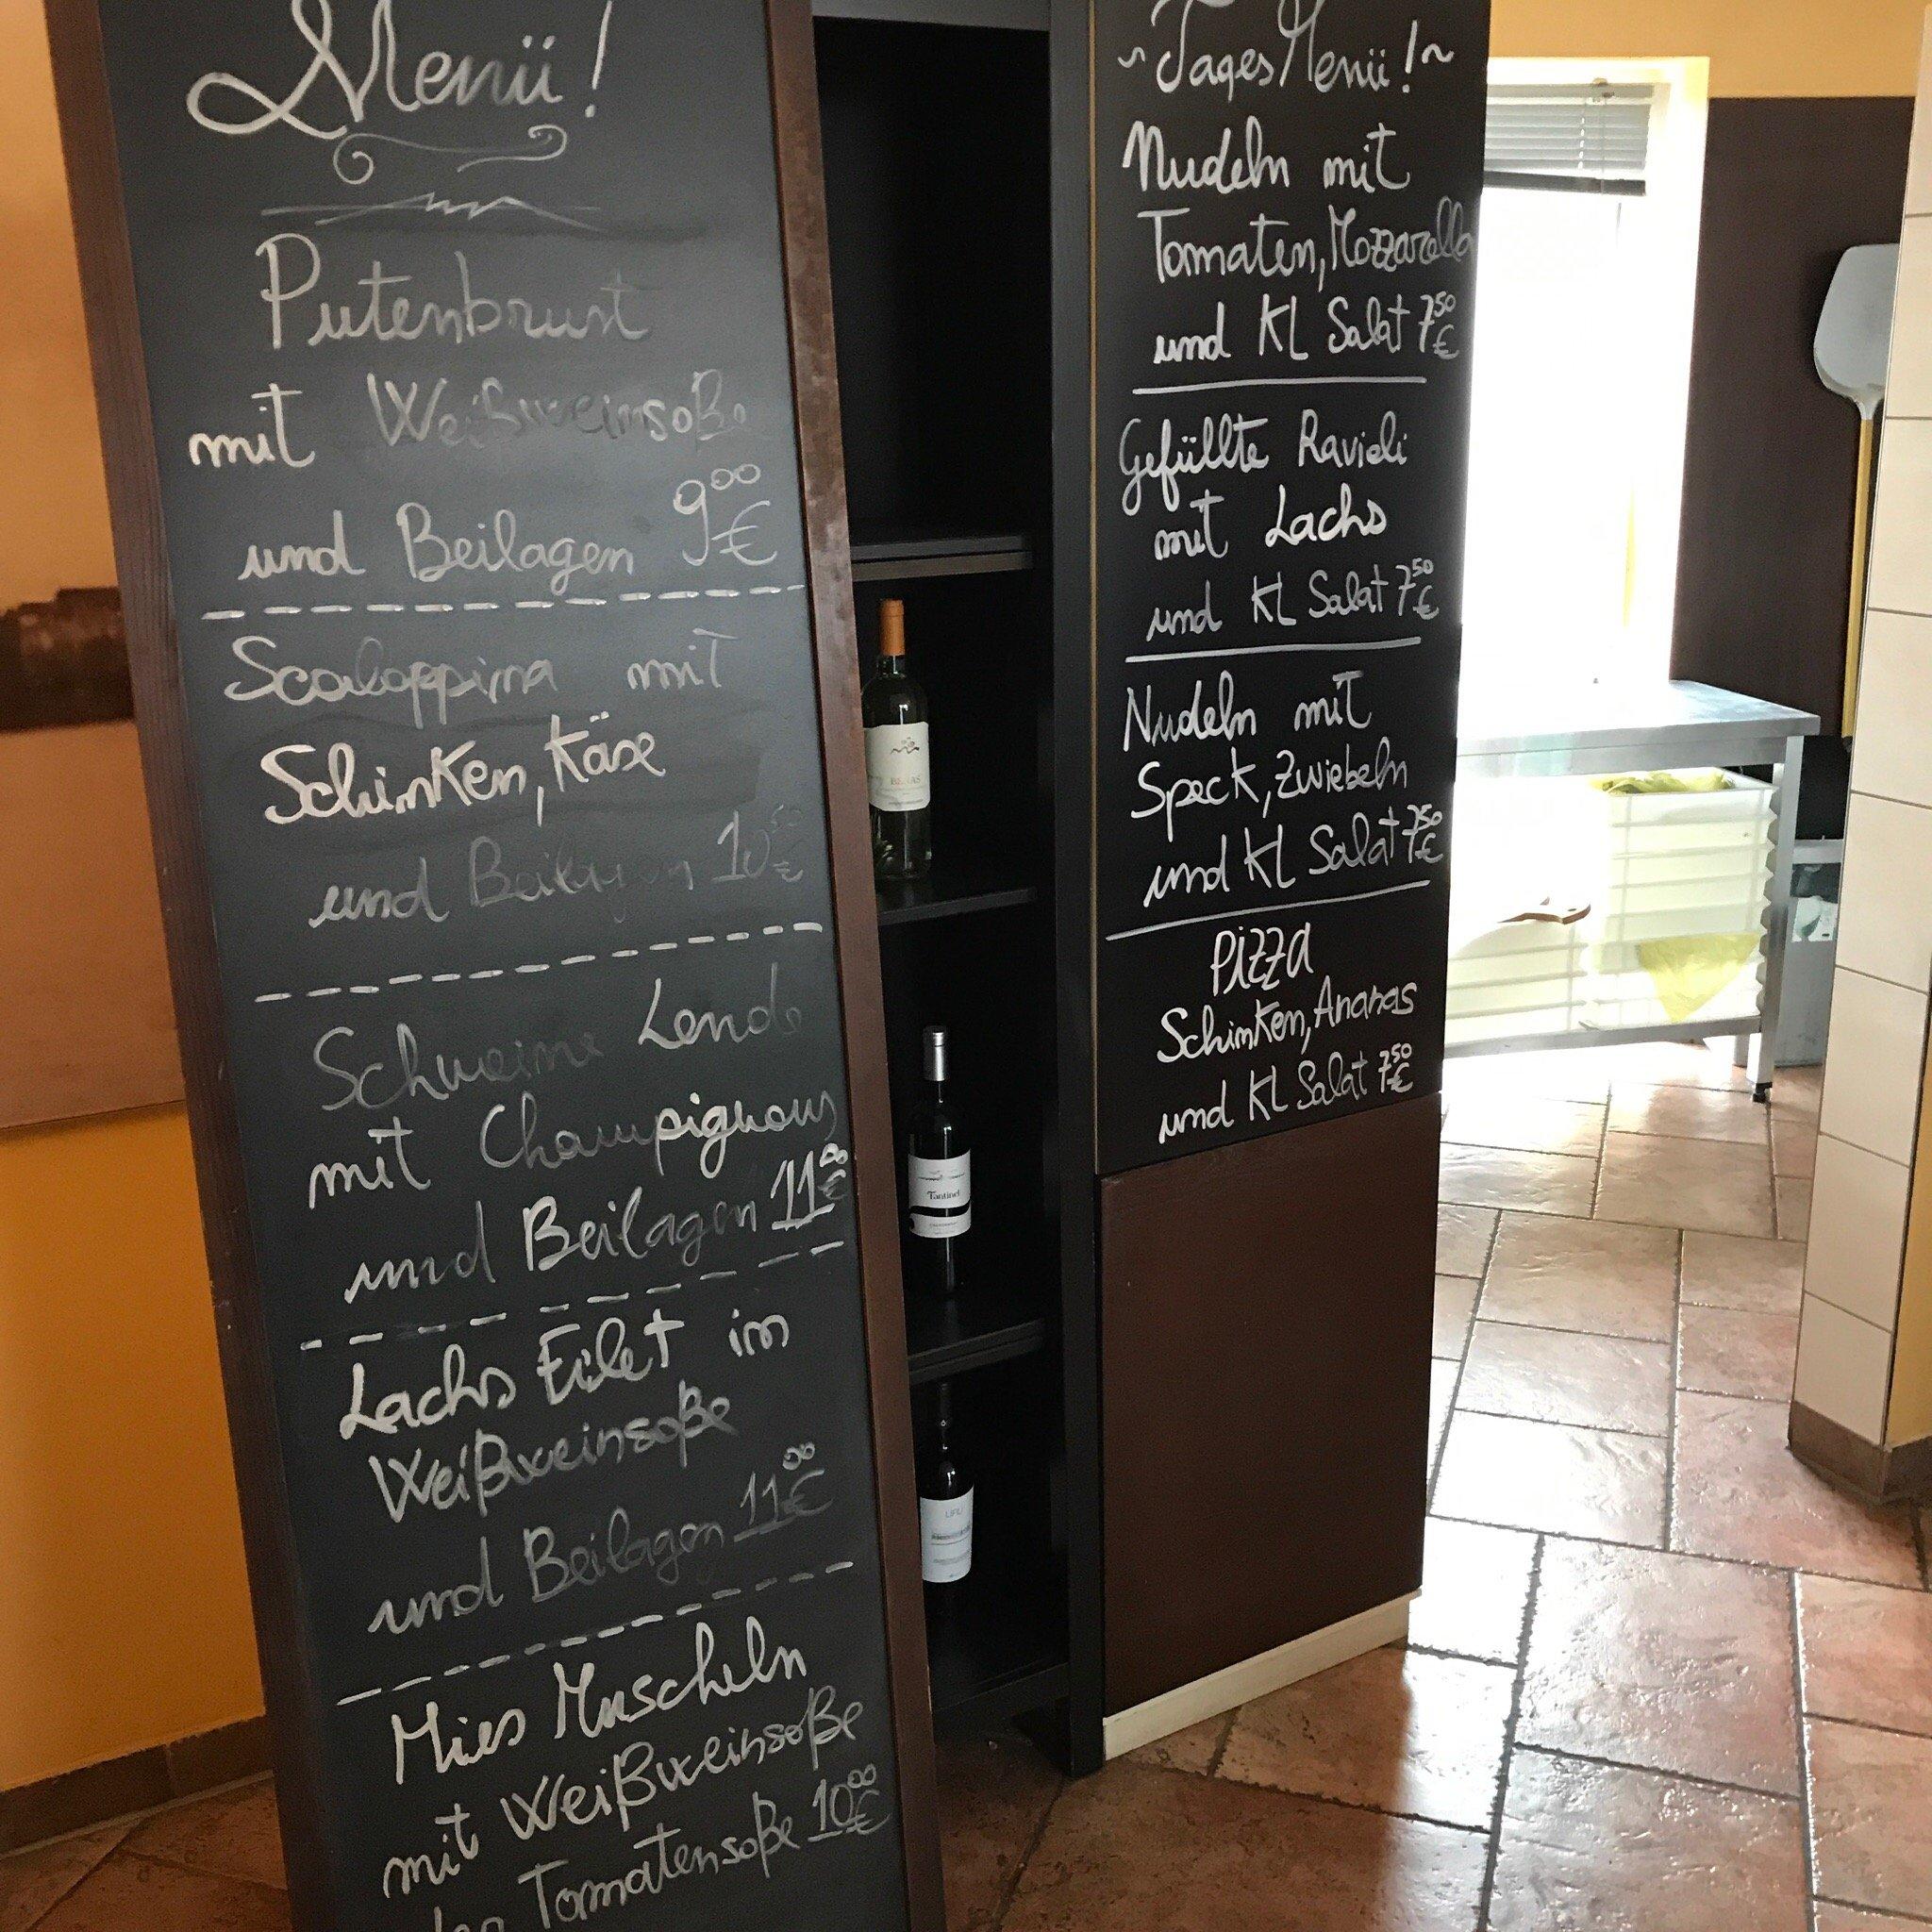 Menü!
Putenbrust
mit Weißweinsoße
und Beilagen 9⁰⁰ €
Scaloppina mit
Schinken, Käse
und Beilagen 10⁵⁰ €
Schweine Lende
mit Champignons
und Beilagen 11⁰⁰ €
Lachs Filet im
Weißweinsoße
und Beilagen 11⁰⁰ €
Mies Muscheln
mit Weißweinsoße
Tomatensoße 10⁰⁰ €
~TagesMenü!~
Nudeln mit
Tomaten, Mozzarella
und KL Salat 7⁵⁰ €
Gefüllte Ravioli
mit Lachs
und KL Salat 7⁵⁰ €
Nudeln mit
Speck, Zwiebeln
und KL Salat 7⁵⁰ €
PiZZA
Schinken, Ananas
und KL Salat 7⁵⁰ €
Tantinel